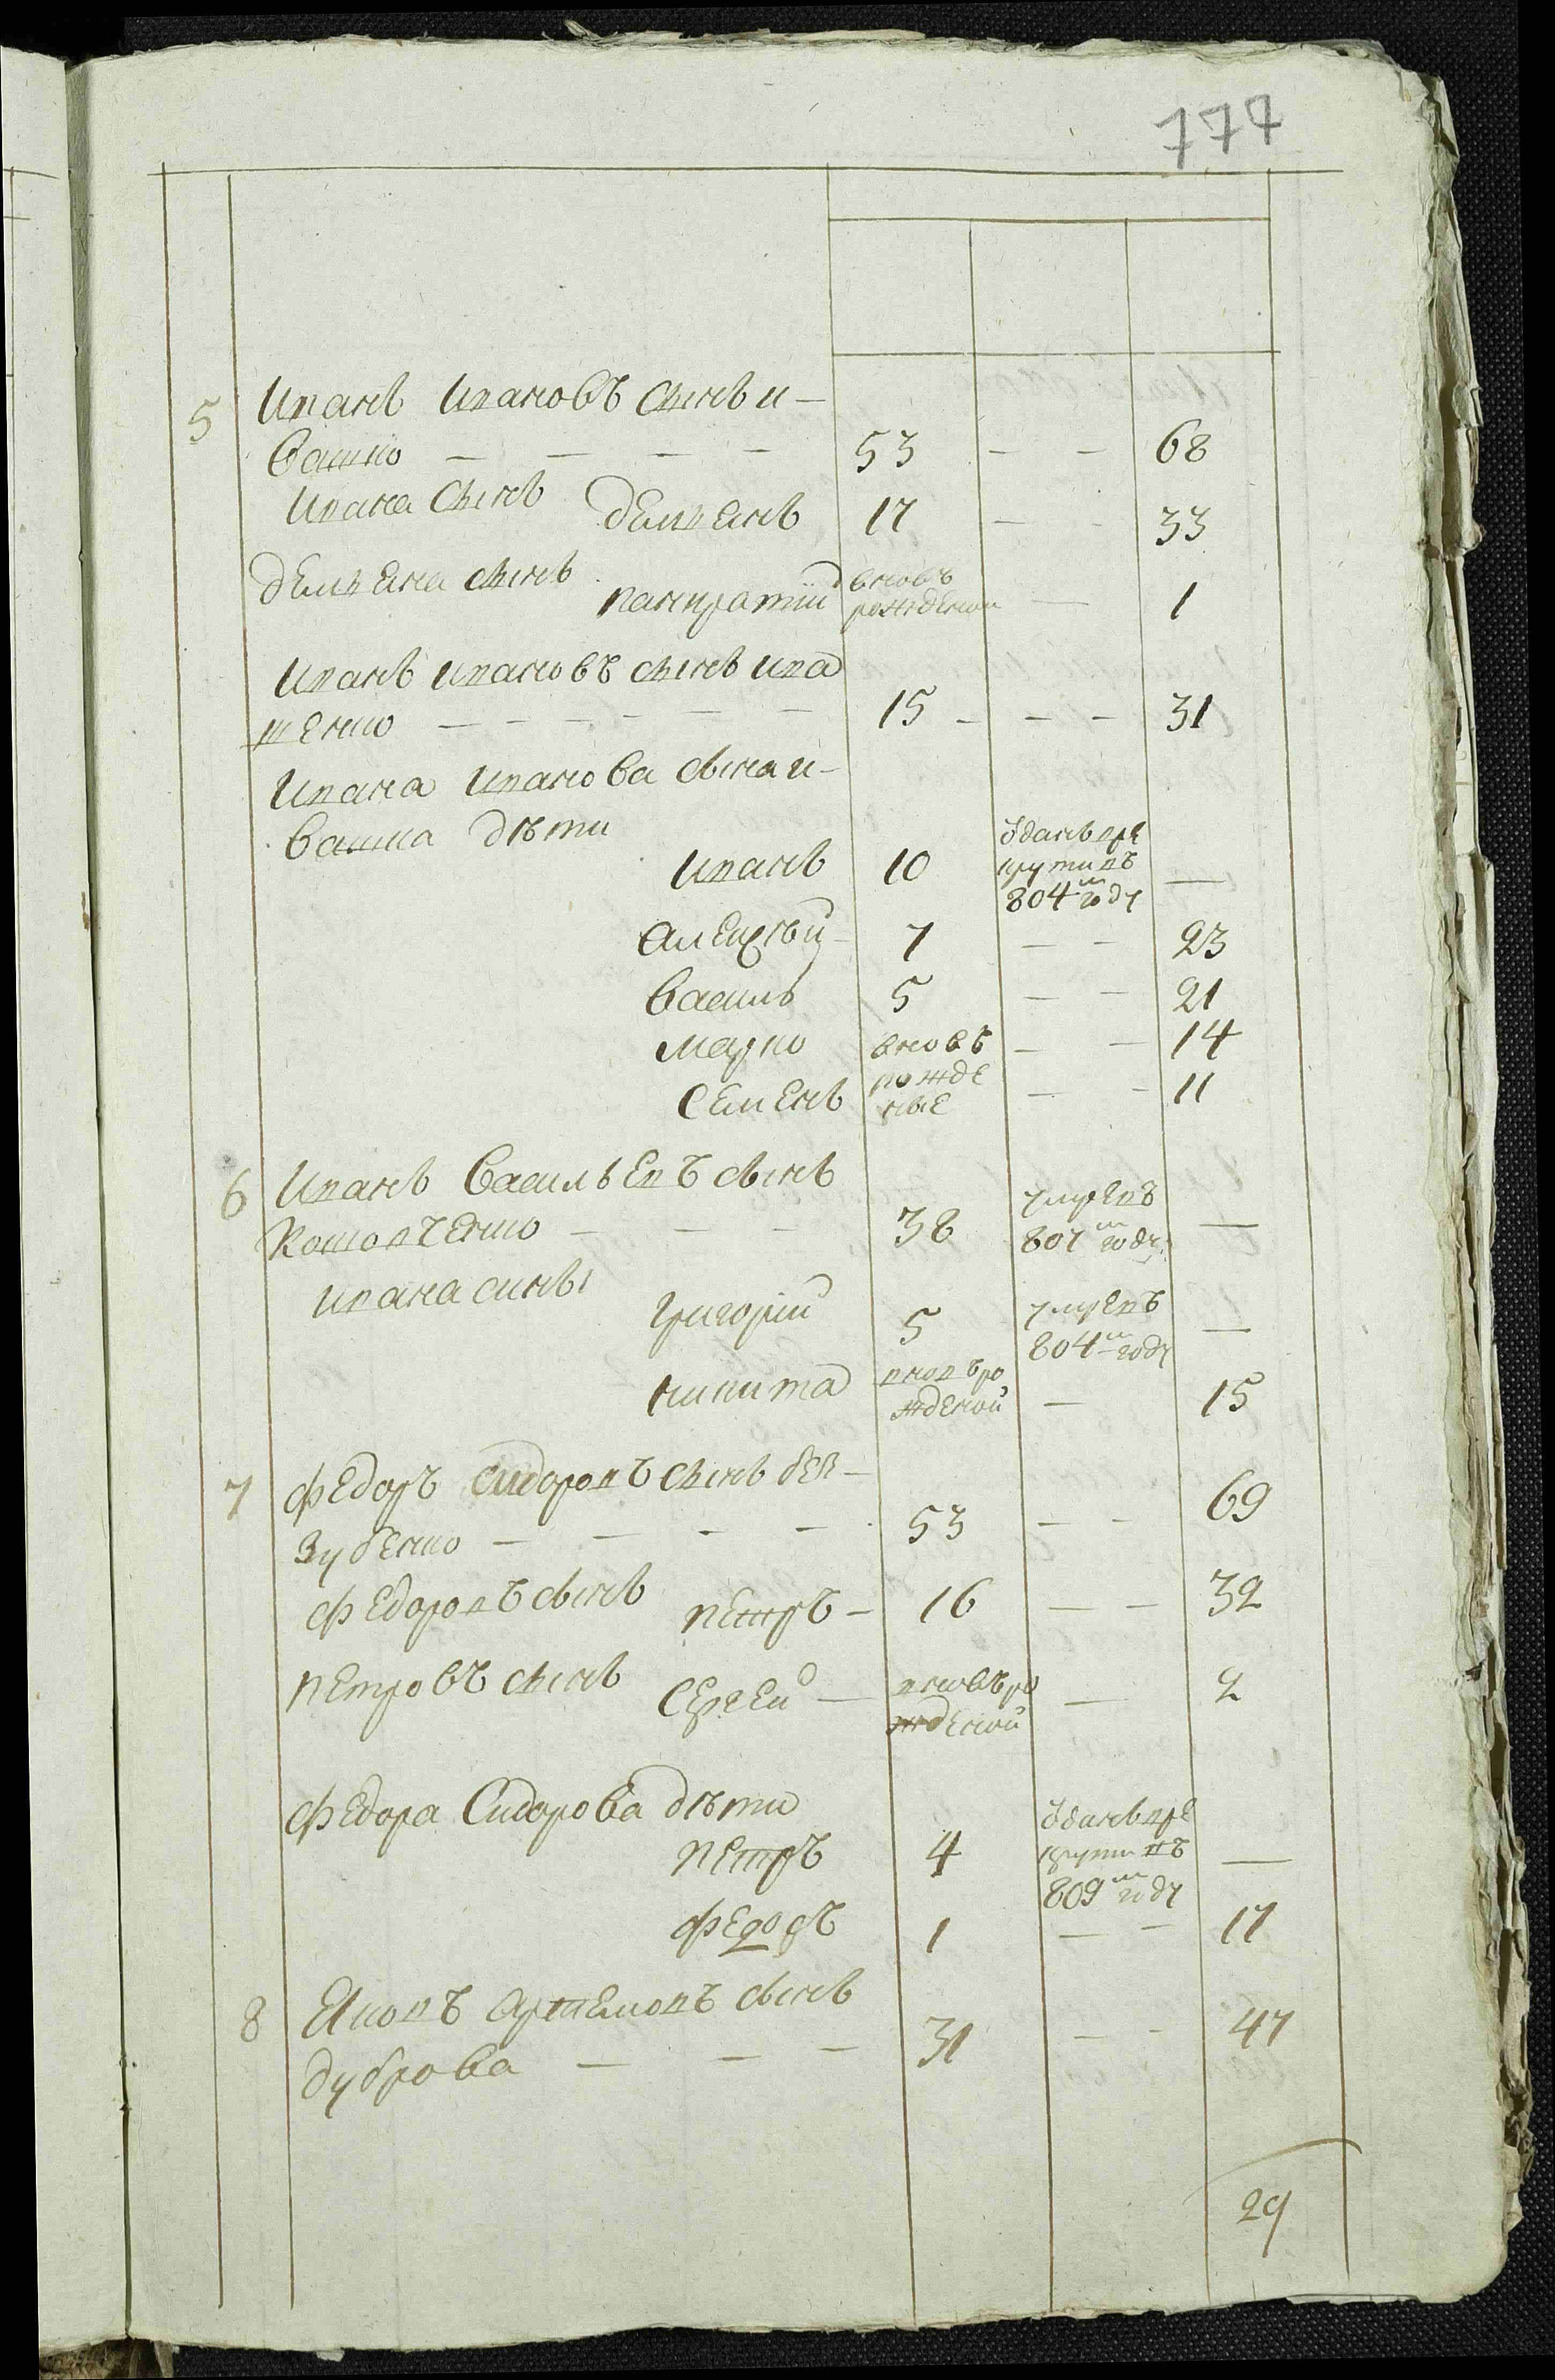 777
5 Иванъ Ивановъ сынъ И-
вашко — — — — 53 — — 68
Ивана сынъ Демьянъ 17 — — 33
Демьяна сынъ Панкратiй вновь
рожденой — 1
Иванъ Ивановъ сынъ Ива
шенко — — — — — — 15 — — — 31
Ивана Иванова сына И-
вашка дѣти
Иванъ 10 ѿданъ вре
крути въ
804м году —
Алексѣй — 7 — — 23
Василь 5 — — 21
Марко вновь — — 14
Семенъ рожде
ные — — 11
6 Иванъ Васильевъ сынъ
Кошовченко — — — 38 умревъ
807м году —
Ивана сины Григорiй 5 умревъ
804м году —
Никита вновь ро
жденой — 15
7 Федоръ Сидоровъ сынъ Без-
зубенко — — — — 53 — — 69
Федоровъ сынъ Петръ — 16 — — 32
Петровъ сынъ Сергей — вновь ро
жденой — 2
Федора Сидорова дѣти
Петръ 4 ѿданъ вре
крути въ
809м году —
Федоръ 1 — — 17
8 Яковъ Артемовъ сынъ
Дуброва — — — 31 — — 47
29